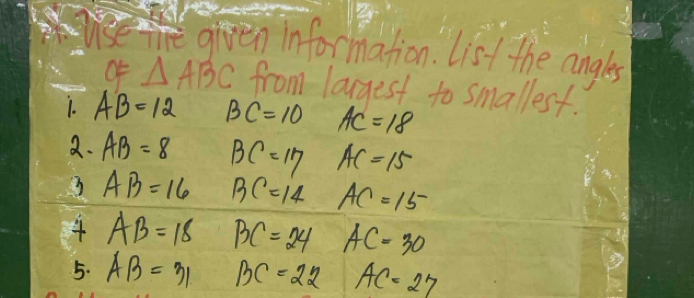 A. Use the given information. List the angles
of Δ ABC from largest to smallest.
1. AB = 12 BC = 10 AC = 18
2. AB = 8 BC = 17 AC = 15
3 AB = 16 BC = 14 AC = 15
4 AB = 18 BC = 24 AC = 30
5. AB = 31 BC = 22 AC = 27